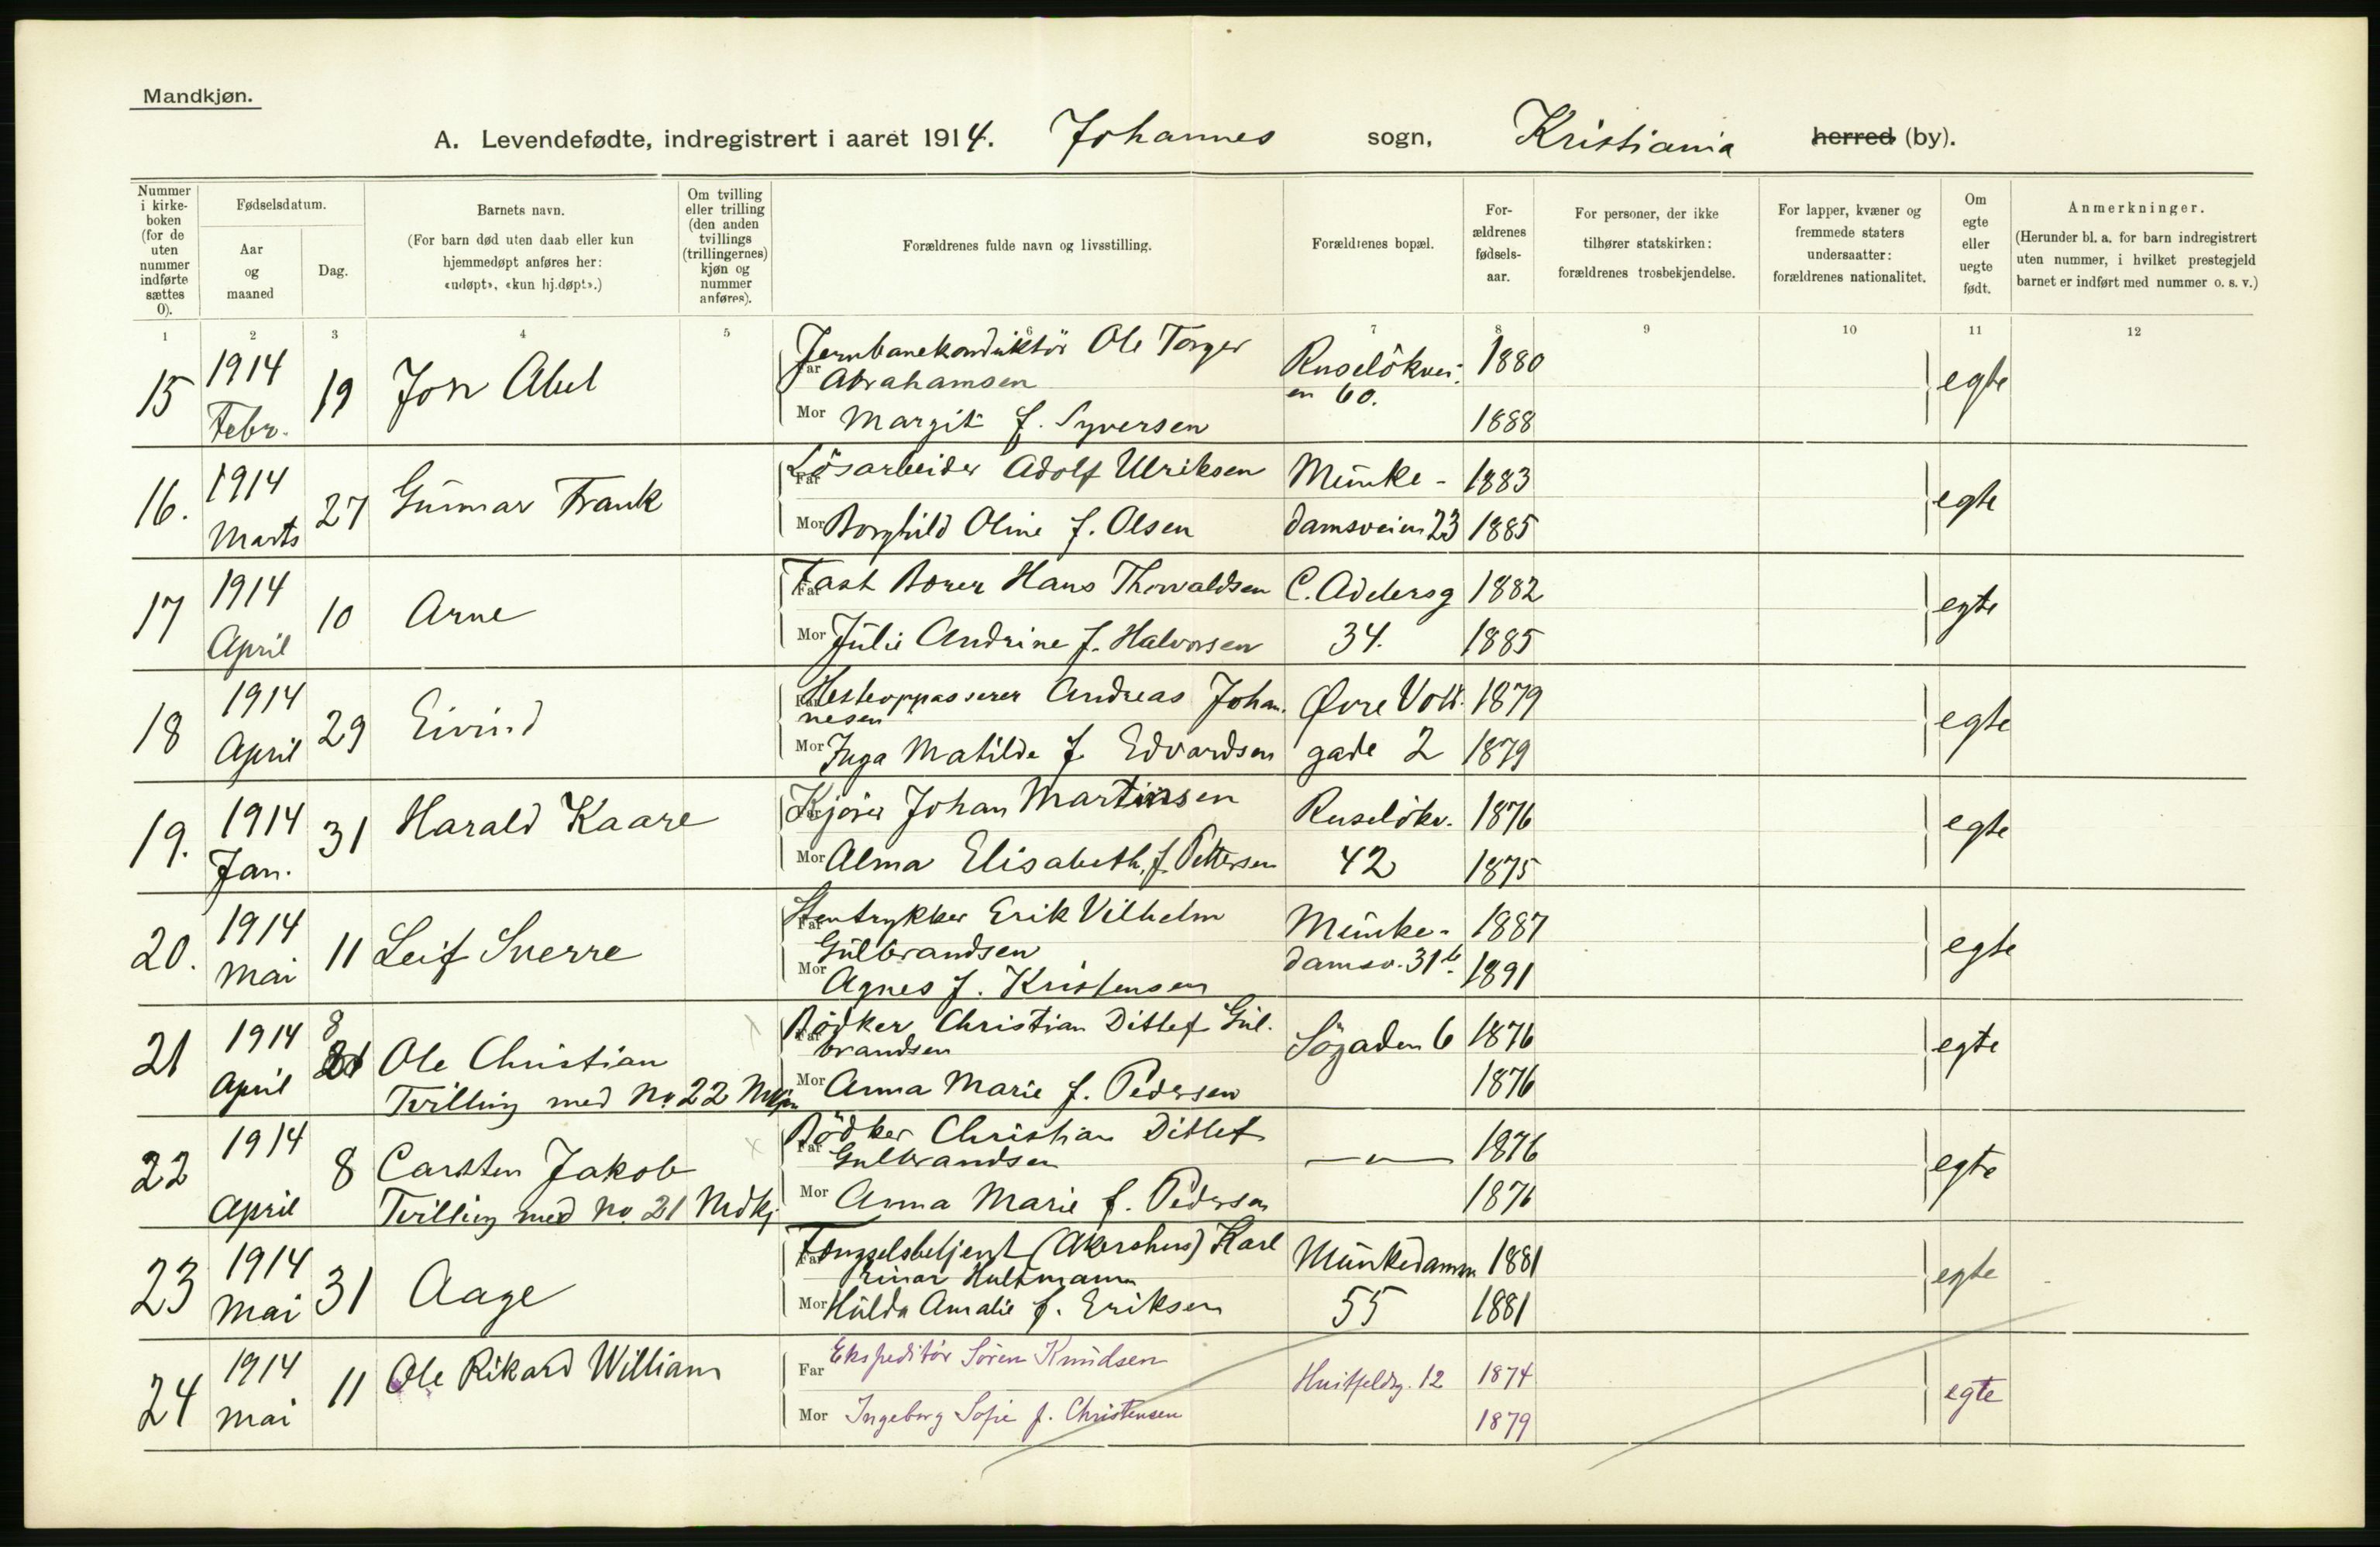 Mandkjøn.
A. Levendefødte, indregistrert i aaret 1914. Johannes sogn, Kristiania herred (by).
Nummer i kirke-boken (for de uten nummer indførte sættes 0).
Fødselsdatum.
Aar og maaned
Dag.
Barnets navn.
(For barn død uten daab eller kun hjemmedøpt anføres her: «udøpt», «kun hj.døpt».)
Om tvilling eller trilling (den anden tvillings (trillingernes) kjøn og nummer anføres).
Forældrenes fulde navn og livsstilling.
Forældrenes bopæl.
For-ældrenes fødsels-aar.
For personer, der ikke tilhører statskirken: forældrenes trosbekjendelse.
For lapper, kvæner og fremmede staters undersaatter: forældrenes nationalitet.
Om egte eller uegte født.
Anmerkninger.
(Herunder bl. a. for barn indregistrert uten nummer, i hvilket prestegjeld barnet er indført med nummer o. s. v.)
1 2 3 4 5 6 7 8 9 10 11 12
15 1914 Febr. 19 Jon Abel
Far Jernbanekonduktör Ole Torger Abrahamsen Ruselökvei-en 60. 1880 egte
Mor Margit f. Syversen 1888
16. 1914 Marts 27 Gunnar Frank
Far Lösarbeider Adolf Ulriksen Munke- 1883 egte
Mor Borghild Oline f. Olsen damsveien 23 1885
17 1914 April 10 Arne
Far Fast Borer Hans Thorvaldsen C. Adelersg 1882 egte
Mor Julie Andrine f. Halvorsen 34. 1885
18 1914 April 29 Eivind
Far Hesteoppasserer Andreas Johan-nesen Øvre Voll- 1879 egte
Mor Inga Matilde f Edvardsen gade 2 1879
19. 1914 Jan. 31 Harald Kaare
Far Kjörer Johan Martinsen Ruselökv. 1876 egte
Mor Alma Elisabeth, f. Pettersen 42 1875
20. 1914 Mai 11 Leif Sverre
Far Stentrykker Erik Vilhelm Gulbrandsen Munke- 1887 egte
Mor Agnes f. Kristensen damsv. 31 b. 1891
21 1914 April 8 Ole Christian
Tvilling med No. 22 Mkjn
Far Bödker Christian Ditlef Gul-brandsen Sögaden 6 1876 egte
Mor Anna Marie f. Pedersen 1876
22 1914 April 8 Carsten Jakob
Tvilling med No. 21 Mdkj
Far Bödker Christian Ditlef Gulbrandsen —"— 1876 egte
Mor Anna Marie f. Pedersen 1876
23 1914 Mai 31 Aage
Far Fængselsbetjent (Akershus) Karl Einar Hultmann Munkedamsv 1881 egte
Mor Hulda Amalie f. Eriksen 55 1881
24 1914 Mai 11 Ole Rikard William
Far Ekspeditör Sören Knudsen Huitfeldtsg. 12 1874 egte
Mor Ingeborg Sofie f. Christensen 1879